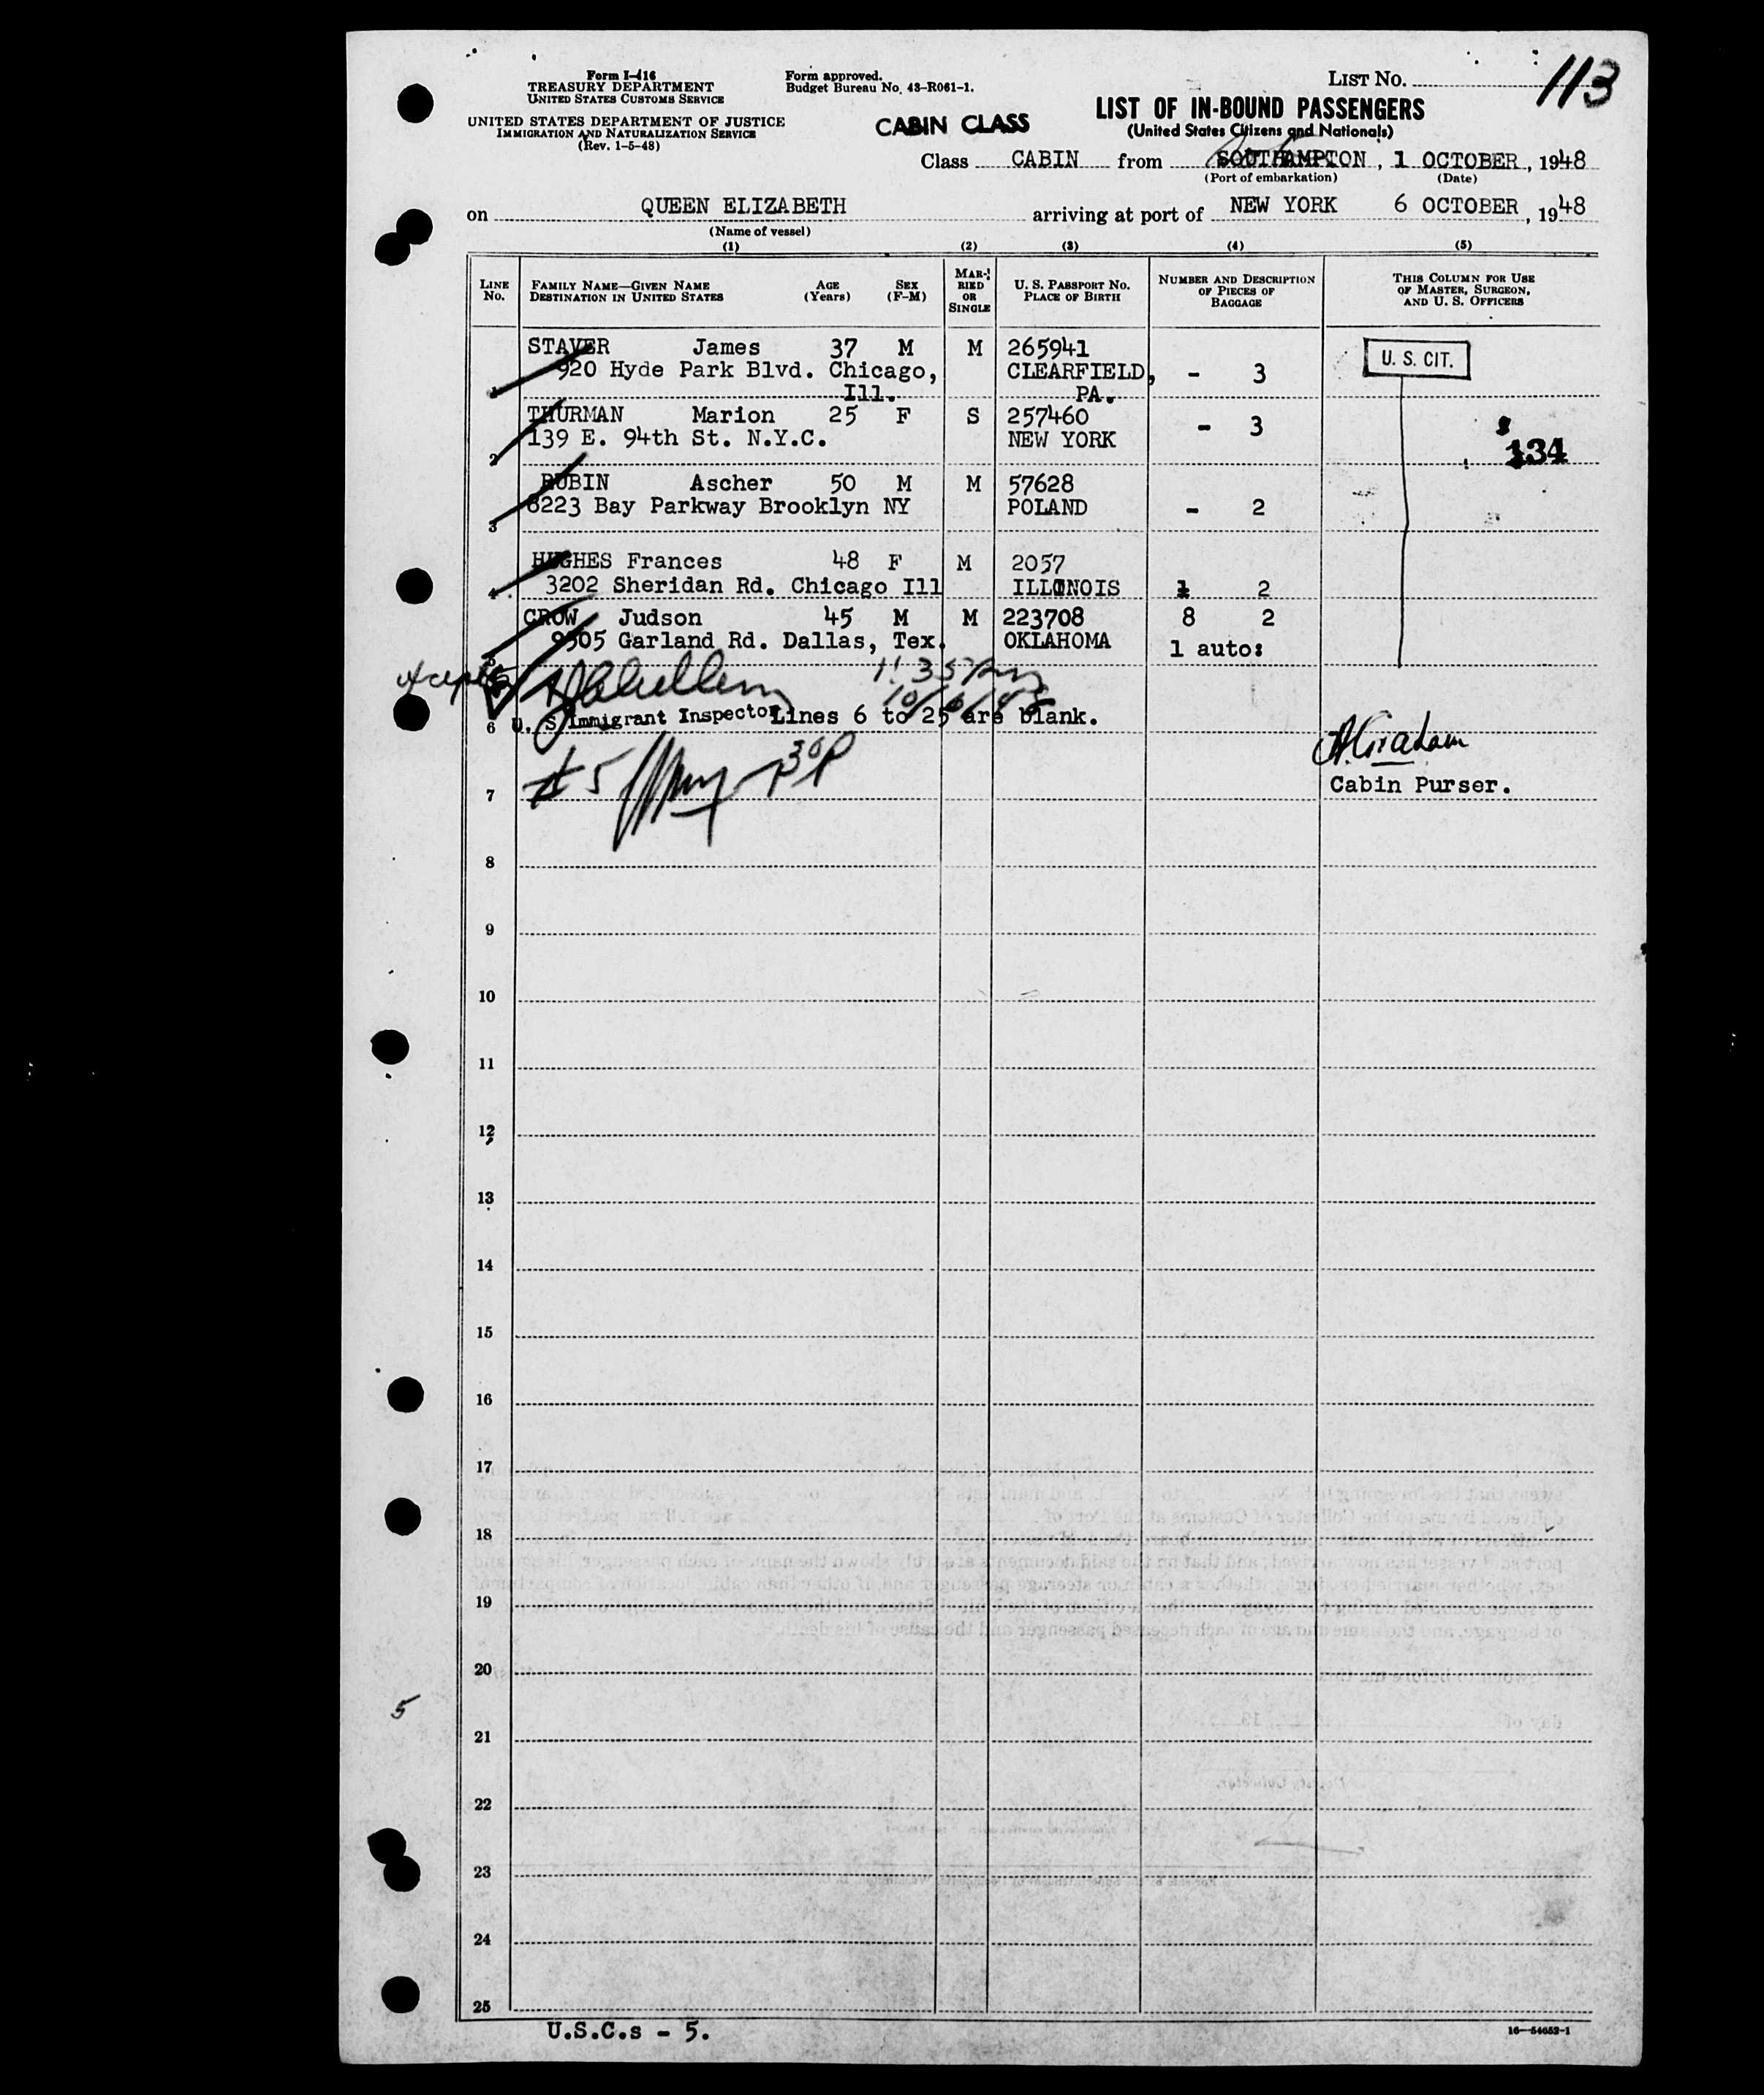 Form I-416
TREASURY DEPARTMENT
UNITED STATES CUSTOMS SERVICE
UNITED STATES DEPARTMENT OF JUSTICE
IMMIGRATION AND NATURALIZATION SERVICE
(Rev. 1-5-48)
Form approved.
Budget Bureau No. 43-R061-1.
CABIN CLASS
LIST NO. 113
LIST OF IN-BOUND PASSENGERS
(United States Citizens and Nationals)
Class CABIN from SOUTHAMPTON, 1 OCTOBER, 1948
(Port of embarkation) (Date)
on QUEEN ELIZABETH arriving at port of NEW YORK 6 OCTOBER, 1948
(Name of vessel)
(1) (2) (3) (4) (5)
LINE No.
FAMILY NAME—GIVEN NAME
DESTINATION IN UNITED STATES
AGE (Years)
SEX (F-M)
MARRIED OR SINGLE
U. S. PASSPORT NO.
PLACE OF BIRTH
NUMBER AND DESCRIPTION OF PIECES OF BAGGAGE
THIS COLUMN FOR USE OF MASTER, SURGEON, AND U. S. OFFICERS
STAVER James 37 M M 265941
920 Hyde Park Blvd. Chicago, CLEARFIELD, - 3
1 Ill. PA.
U. S. CIT.
THURMAN Marion 25 F S 257460
139 E. 94th St. N.Y.C. NEW YORK - 3
2
134
RUBIN Ascher 50 M M 57628
8223 Bay Parkway Brooklyn NY POLAND - 2
3
HUGHES Frances 48 F M 2057
4 3202 Sheridan Rd. Chicago Ill ILLINOIS 1 2
CROW Judson 45 M M 223708 8 2
9505 Garland Rd. Dallas, Tex. OKLAHOMA 1 auto:
5
10/6/48
U. S. Immigrant Inspector
6 Lines 6 to 25 are blank.
A. Graham
Cabin Purser.
#5
7
8
9
10
11
12
13
14
15
16
17
18
19
20
5
21
22
23
24
25
U.S.C.s - 5.
16—54052-1